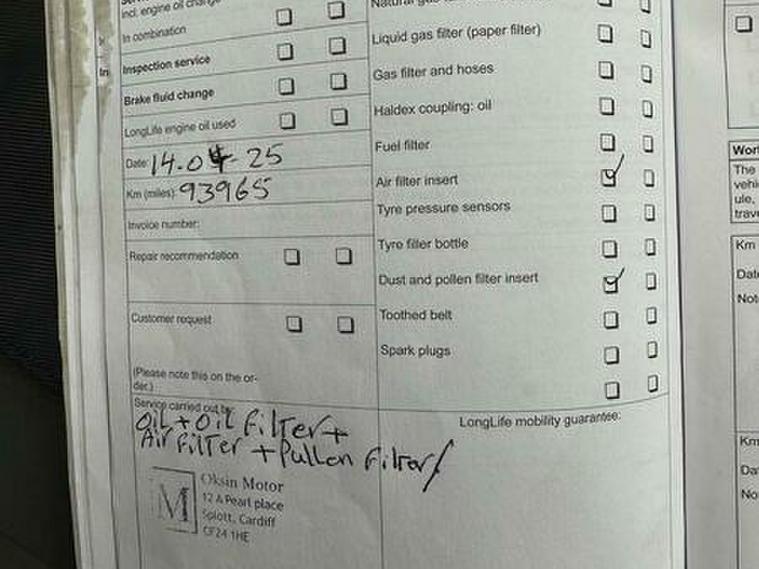 incl. engine oil change
In combination
Inspection service
Brake fluid change
LongLife engine oil used
Date: 14-04-25
Km (miles): 93965
Invoice number:
Repair recommendation
Customer request
(Please note this on the or-
der.)
Service carried out by:
Oil + Oil Filter +
Air Filter + Pullen Filter/
M
Oksin Motor
12 A Pearl place
Splott, Cardiff
CF24 1HE
Natural gas
Liquid gas filter (paper filter)
Gas filter and hoses
Haldex coupling: oil
Fuel filter
Air filter insert
Tyre pressure sensors
Tyre filler bottle
Dust and pollen filter insert
Toothed belt
Spark plugs
LongLife mobility guarantee:
The
Km
Km